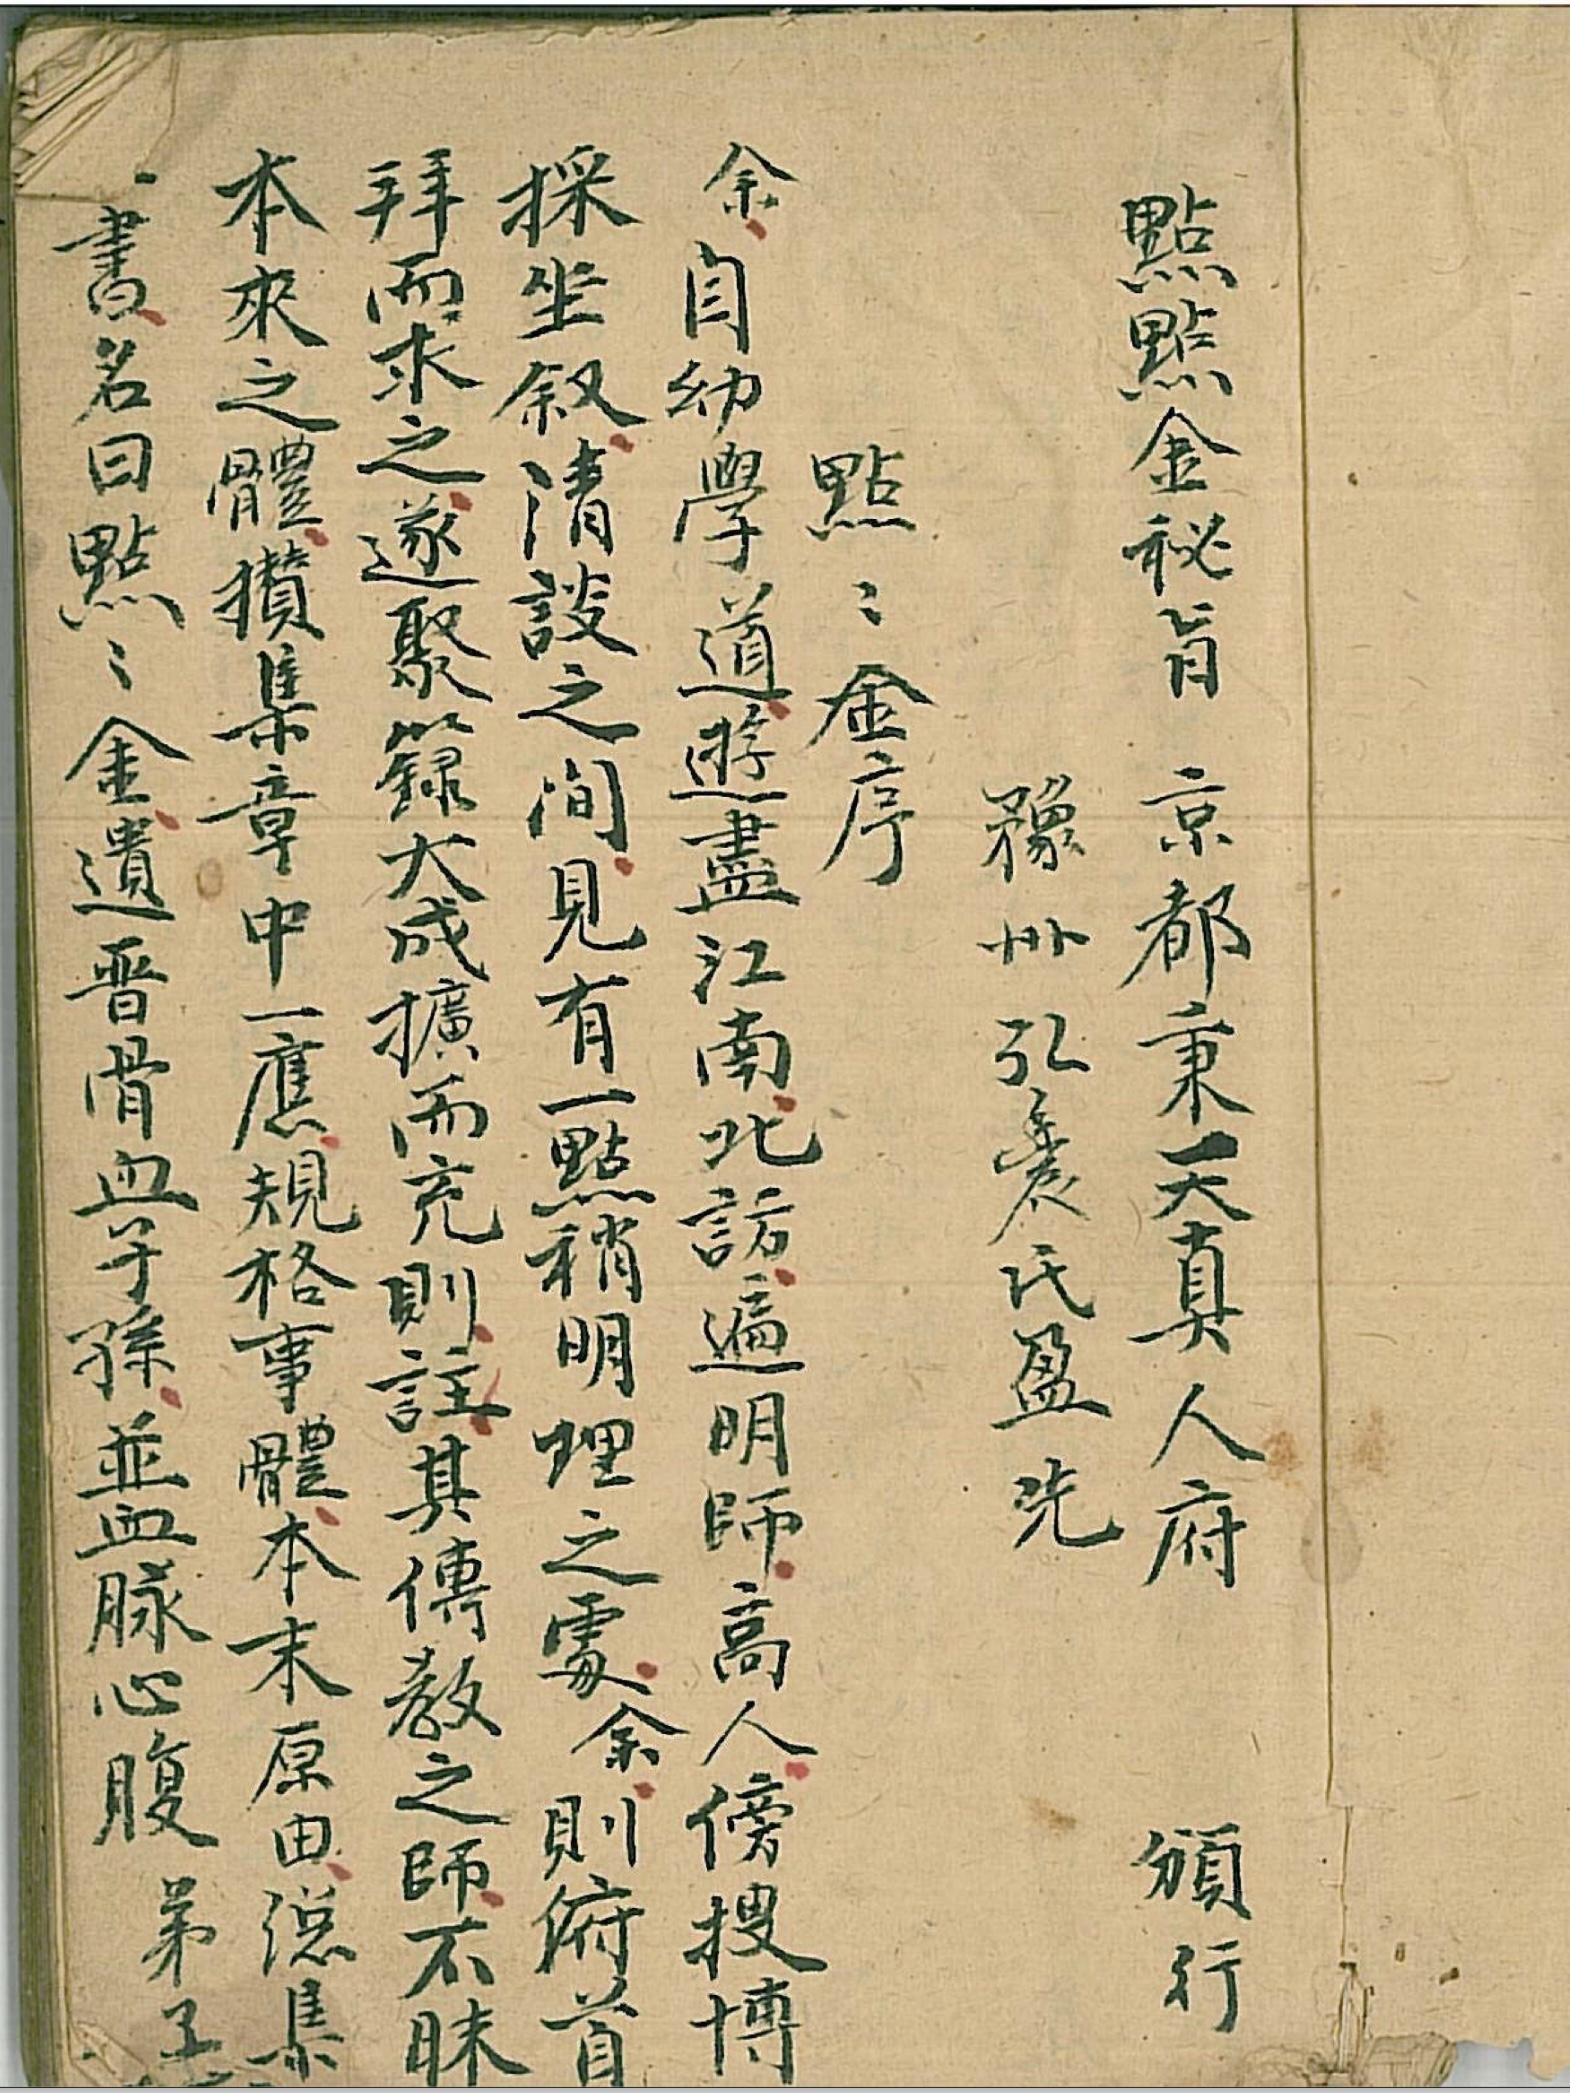 點點金秘旨 京都秉天真人府 頒行
豫州弘農氏盈洗
點〻金序
余自幼學道遊盡江南北訪遍明師高人傍搜博
採坐叙清談之間見有一點稍明理之處余則俯首
拜而求之遂聚籙大成擴而充則註其傳教之師不昧
本來之體攢集章中一應規格事體本末原由總集
書名曰點〻金遺晋骨血子孫並血脉心腹弟子